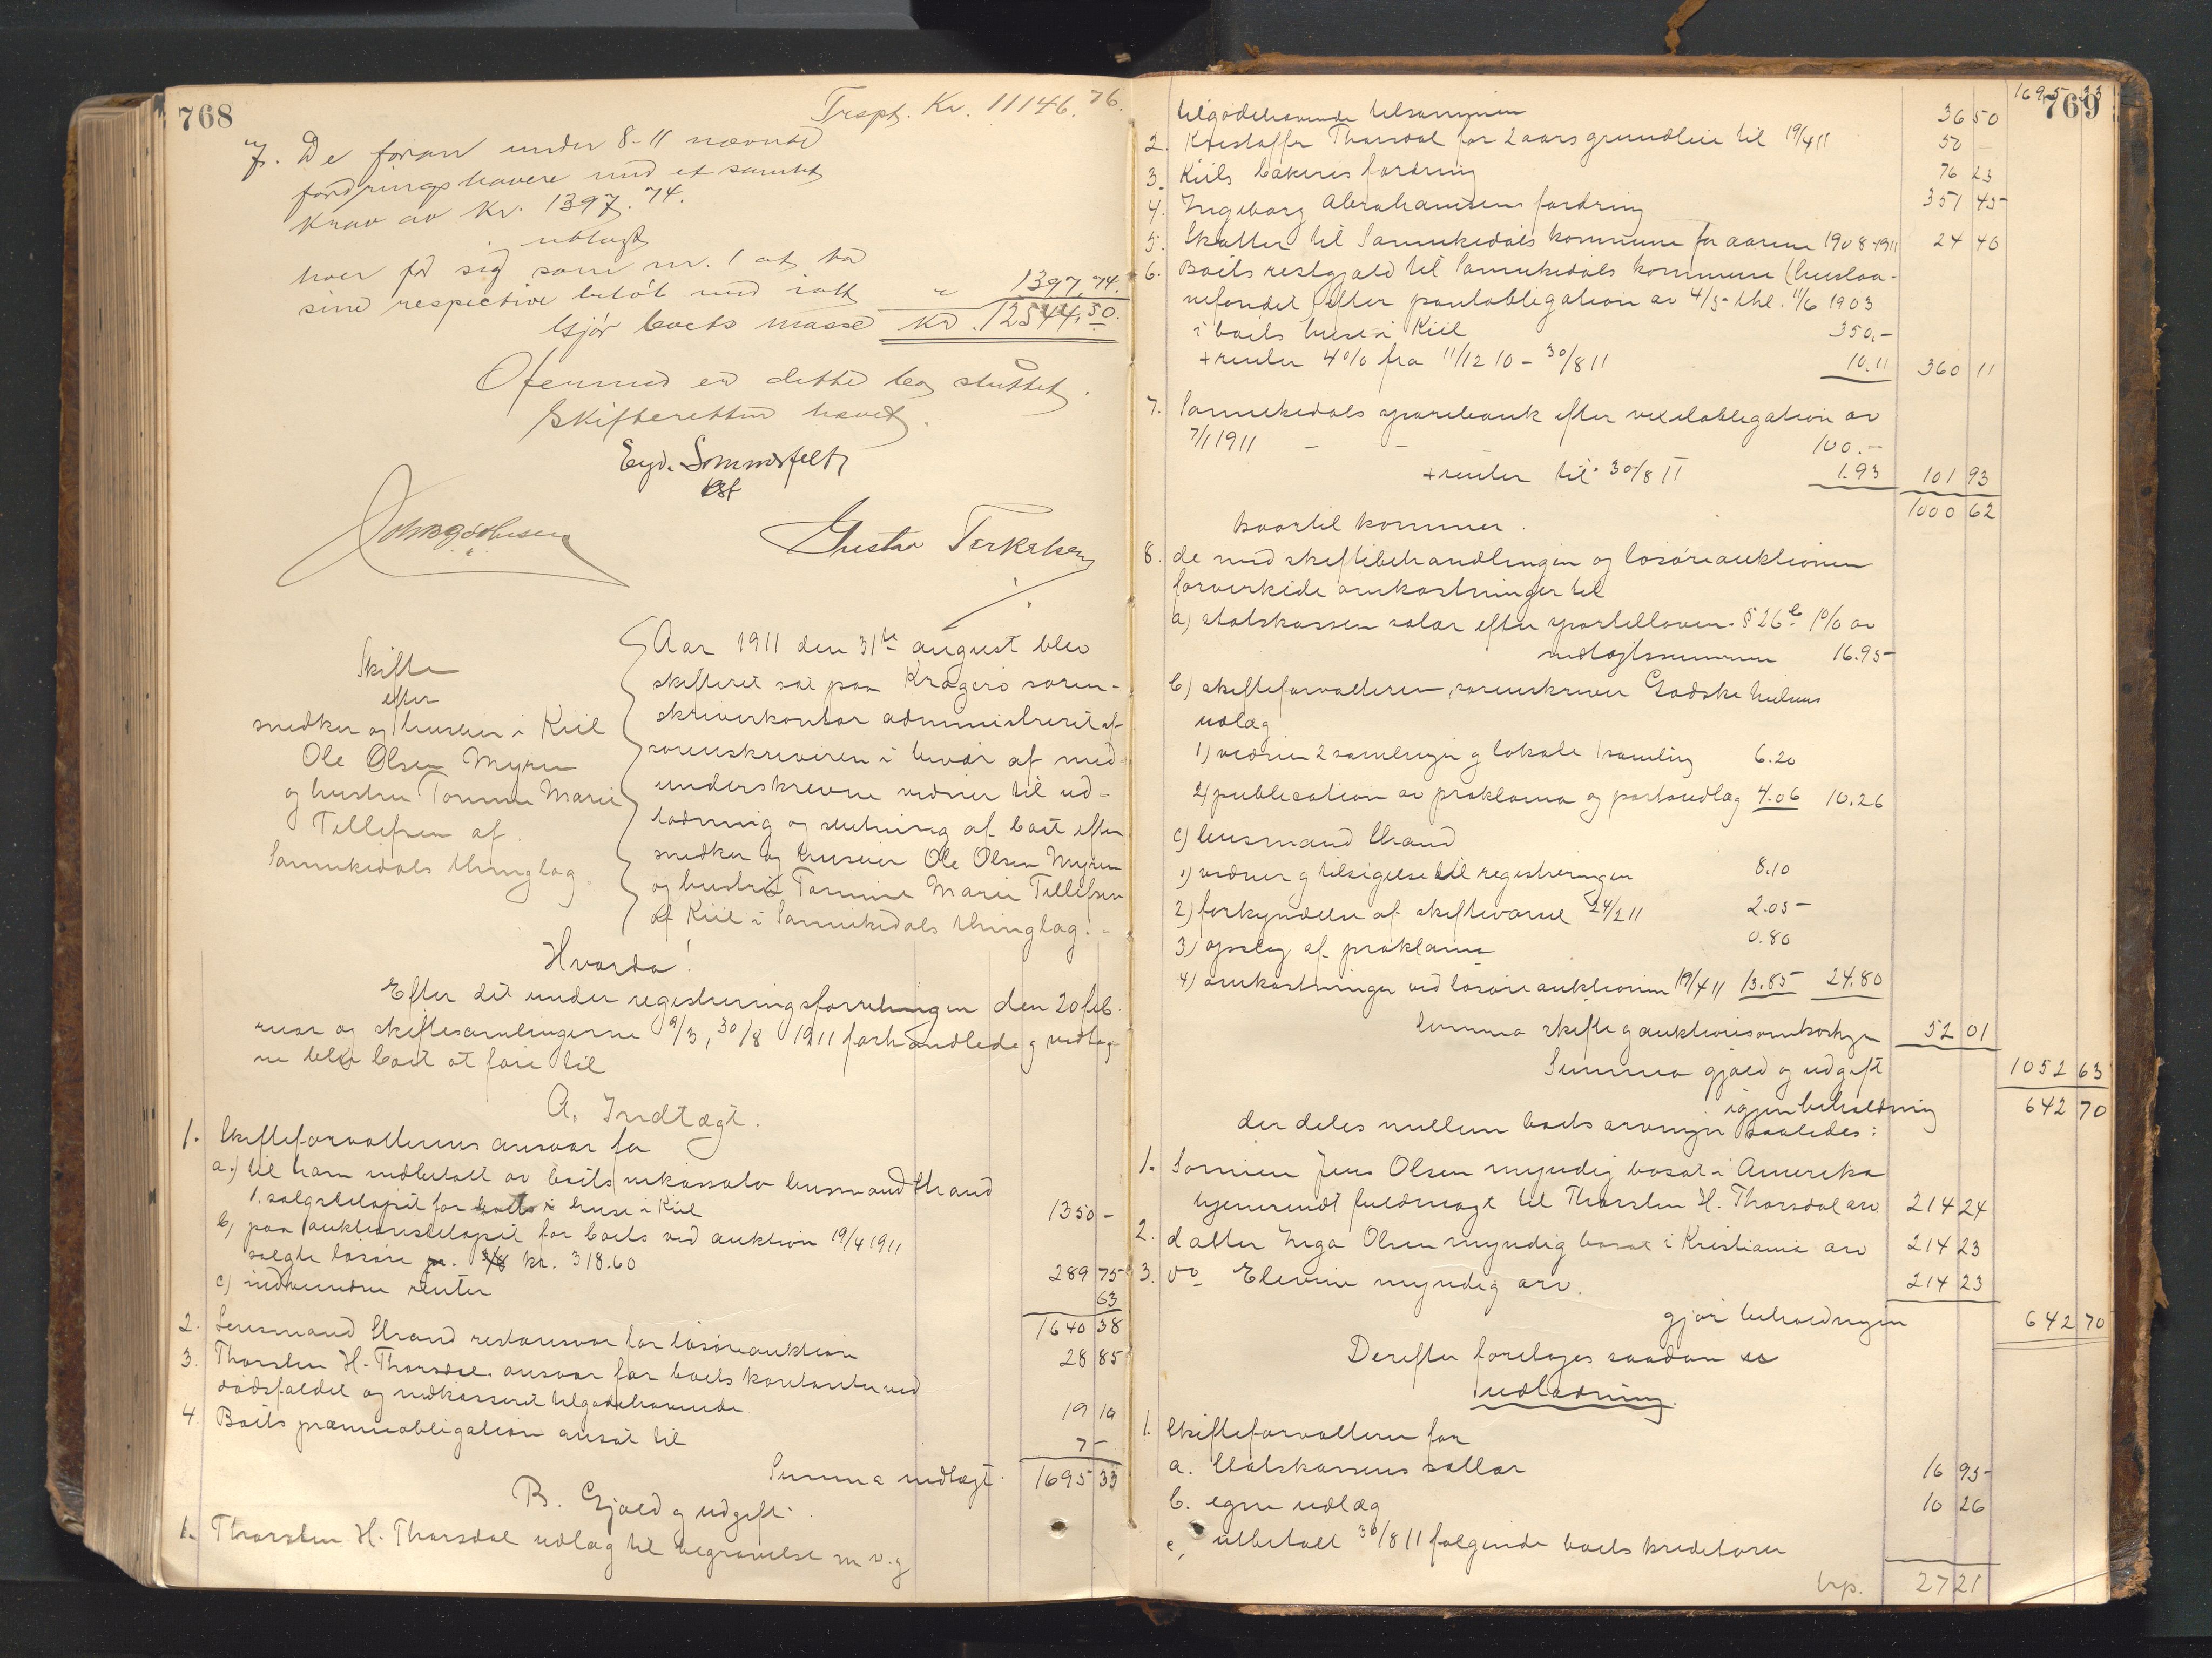 768
Trspt. Kr. 11146.76.
7. De foran under 8-11 nævnte
fordringshavere med et samlet
krav av Kr. 1397.74.
utlagt
hver for sig som nr. 1 at ta
sine respective beløb med ialt " 1397,74.
Gjør boets masse Kr. 12544,50.
Ofermed er dette bo sluttet.
Skifteretten hævet.
Eyd. Sommerfelt
Gustav Terkelsen
Skifte
efter
snedker og huseier i Kiil
Ole Olsen Myren
og hustru Tomine Marie
Tellefsen af
Sannikedals thinglag.
Aar 1911 den 31te august blev
skifteret sat paa Kragerø soren-
skriverkontor administreret af
sorenskriveren i overvær af med-
underskrevne vidner til ud-
lodning og slutning af boet efter
snedker og huseier Ole Olsen Myren
og hustru Tomine Marie Tellefsen
af Kiil i Sannikedals thinglag.
Hvorda!
Efter det under registreringsforretningen den 20 feb-
ruar og skiftesamlingerne 9/3, 30/8 1911 forhandlede og vedtag-
ne blev boet at føre til
A. Indtægt.
1. Skifteforvalterens ansvar for
a.) til ham indbetalt av boets inkassator lensmand Strand
1. salgsbeløpet for boets hus i Kiil 1350 -
b) paa auktionsbeløpet for boets ved auktion 19/4 1911
solgte løsøre kr. 318.60 289 75
c) indvundne renter 63
1640 38
2. Lensmand Strand restansvar for løsøreauktion 28 85
3. Thorsten H. Thorsdal ansvar for boets kontanter ved
dødsfaldet og indkasseret tilgodehavende 19 10
4. Boets præmieobligation ansat til 7 -
Summa indtægt 1695 33
B. Gjæld og udgift.
1. Thorsten H. Thorsdal udlæg til begravelse m.v. og
769
1695 33
tilgodehavende tilsammen 36 50
2. Kristoffer Thorsdal for 2 aars grundleie til 19/4 11 50
3. Kiils bakeris fordring 76 23
4. Ingeborg Abrahamsens fordring 351 45
5. Skatter til Sannikedals kommune for aarene 1908-1911 24 40
6. Boets restgjæld til Sannikedals kommune (huslaa-
nefondet) efter pantobligation av 4/5 thl. 11/6 1903
i boets huse i Kiil 350.-
+ renter 4% fra 11/12 10 - 30/8 11 10.11 360 11
7. Sannikedals sparebank efter vexelobligation av
7/1 1911 - - 100.-
+ renter til 30/8 11 1.93 101 93
1000 62
hvortil kommer.
8. de med skiftebehandlingen og løsøreauktionen
forvirkede omkostninger til
a) statskassen salær efter sportelloven § 26 b 1% av
indtægtssummen 16.95
b) skifteforvalteren, sorenskriver Godske Nielsens
udlæg
1) vidner 2 samlinger og lokale 1 samling 6.20
2) publication av proklama og portoudlæg 4.06 10.26
c) lensmand Strand
1) vidner og tilsigelse til registreringen 8.10
2) forkyndelse af skiftevarsel 24/2 11 2.05
3) opslag af proklama 0.80
4) omkostninger ved løsøreauktionen 19/4 11 13.85 24.80
Summa skifte og auktionsomkostn. 52 01
Summa gjæld og udgift 1052 63
igjen beholdning 642 70
der deles mellem boets arvinger saaledes:
1. Sønnen Jens Olsen myndig bosat i Amerika
hjemsendt fuldmagt til Thorsten H. Thorsdal arv 214 24
2. datter Inga Olsen myndig bosat i Kristiania arv 214 23
3. do Elevine myndig arv. 214 23
gjør beholdningen 642 70
Derefter foretages saadan
udlodning.
1. Skifteforvalteren for
a. Statskassens sallær 16 95
b. egne udlæg 10 26
c. utbetalt 30/8 11 følgende boets kreditorer
trp. 27 21